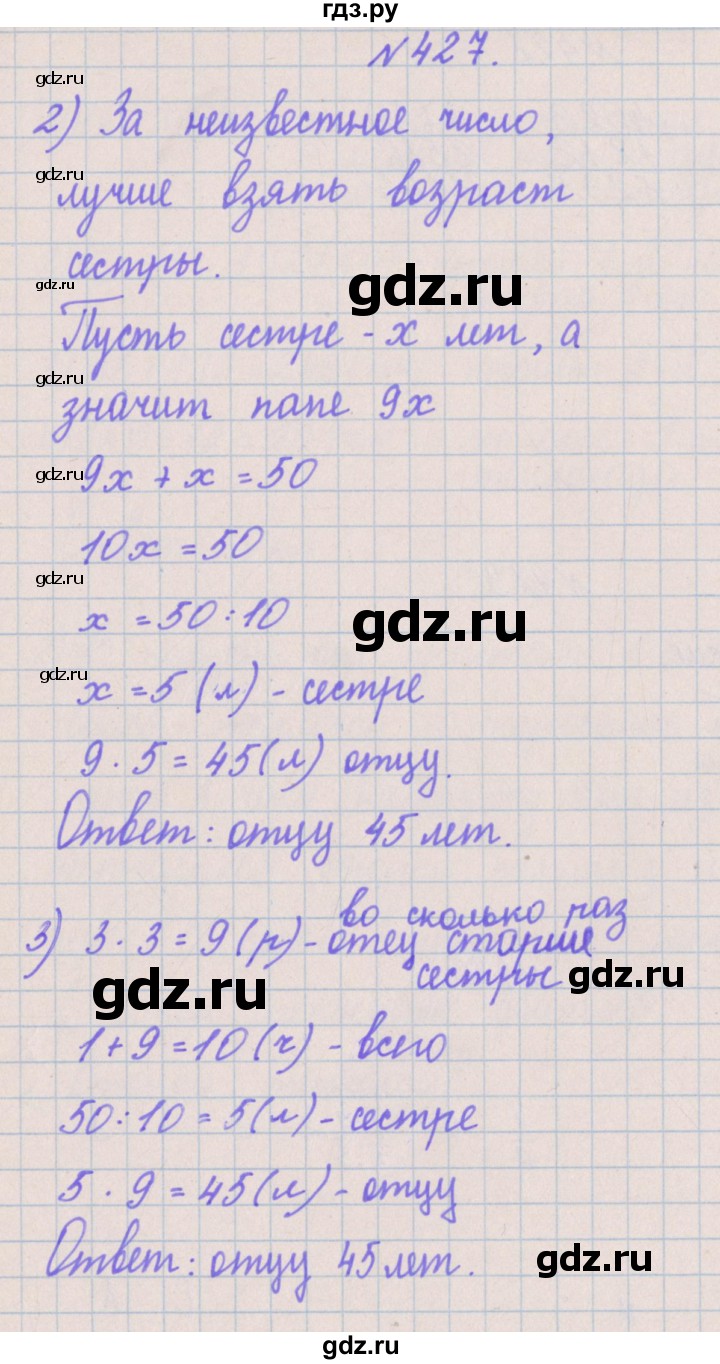 гдз.ру
№427.
gdz.ru
2) За неизвестное число,
gdz.ru
лучше взять возраст
сестры.
gdz.ru
gdz.ru
Пусть сестре - х лет, а
gdz.ru
значит папе 9х
gdz.ru
9х + х = 50
10х = 50
gdz.ru
х = 50 : 10
gdz.ru
gdz.ru
х = 5 (л) - сестре
9 · 5 = 45 (л) отцу.
Ответ: отцу 45 лет.
3) 3 · 3 = 9 (р) - во сколько раз
отец старше
сестры
gdz.ru
gdz.ru
1 + 9 = 10 (ч) - всего
50 : 10 = 5 (л) - сестре
5 · 9 = 45 (л) - отцу
Ответ: отцу 45 лет.
gdz.ru
gdz.ru